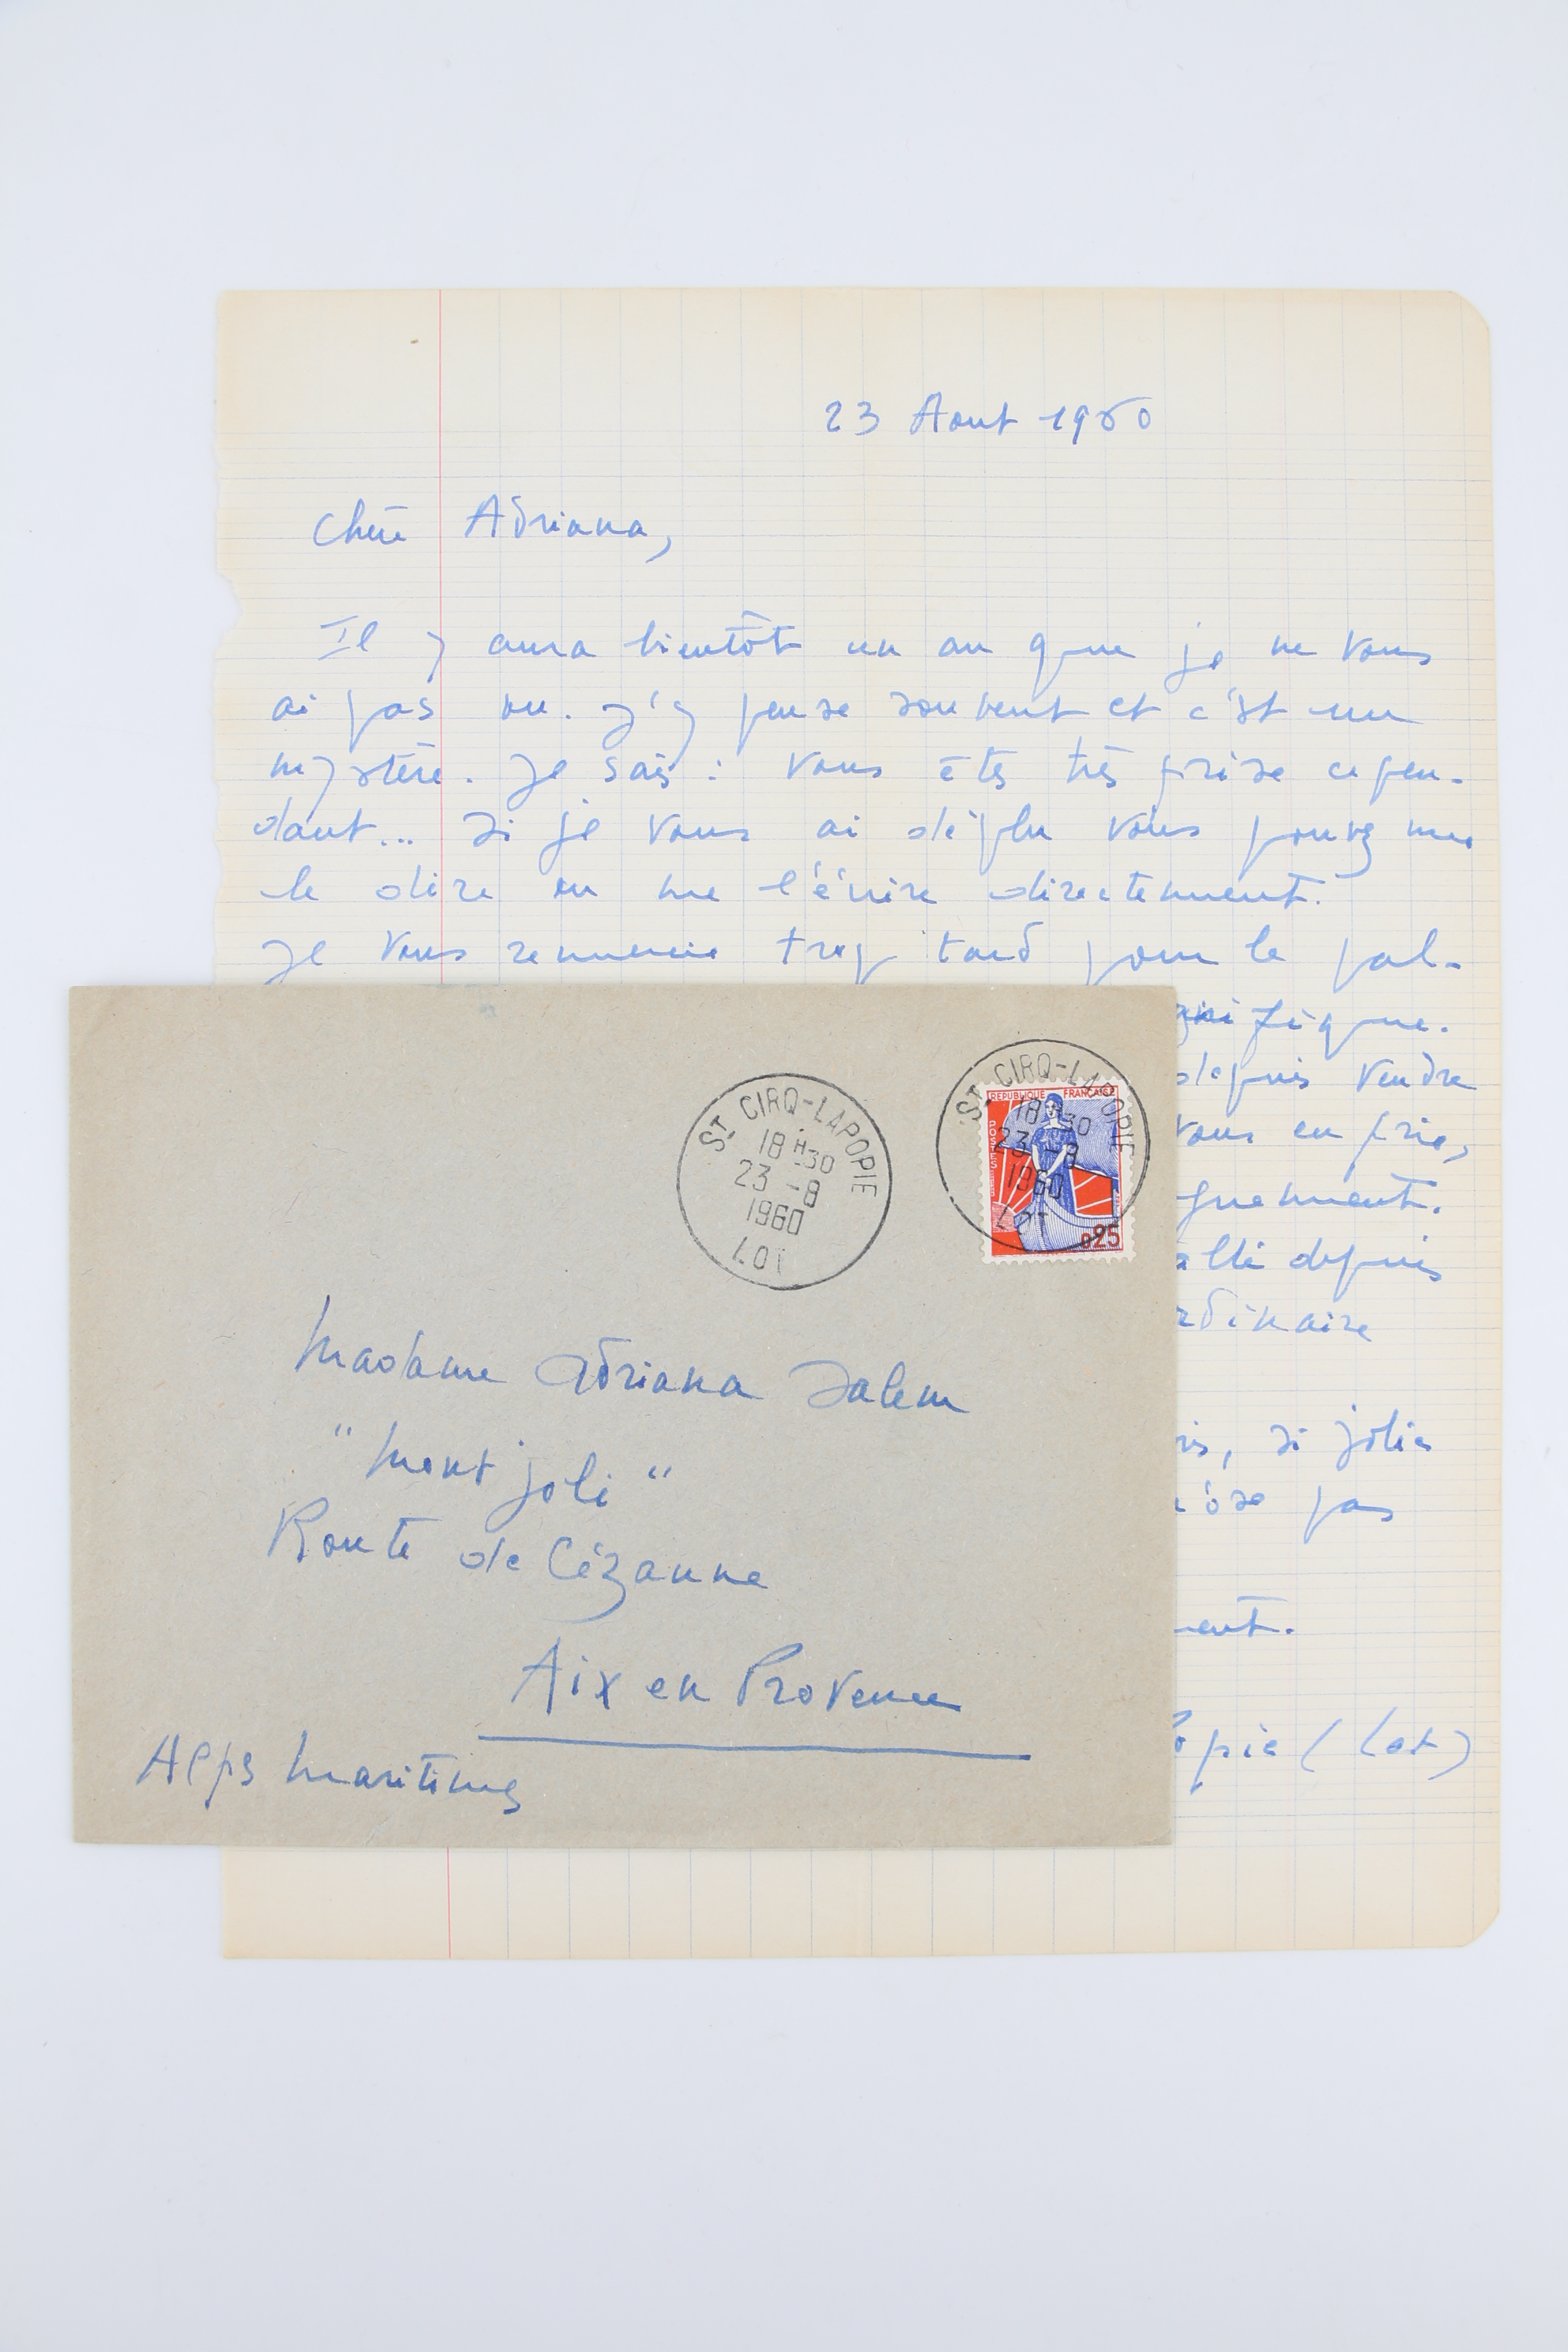 23 Aout 1960
Chère Adriana,
Il y aura bientôt un an que je ne vous
ai pas vu. J'y pense souvent et c'est un
mystère. Je sais : vous êtes très prise cepen-
dant... Si je vous ai déplu vous pouvez me
le dire ou me l'écrire directement.
Je vous remercie trop tard pour le pal-
gnifique.
depuis vendre
vous en prie,
quement.
allé depuis
rdinaire
ris, si jolie
n'ose pas
ment.
opie (Lot)
ST CIRQ-LAPOPIE
18 H 30
23 - 8
1960
LOT
ST CIRQ-LAPOPIE
18 H 30
23 - 8
1960
LOT
REPUBLIQUE FRANÇAISE
POSTES
0,25
Madame Adriana Salem
"Mont joli"
Route de Cézanne
Aix en Provence
Alpes Maritimes